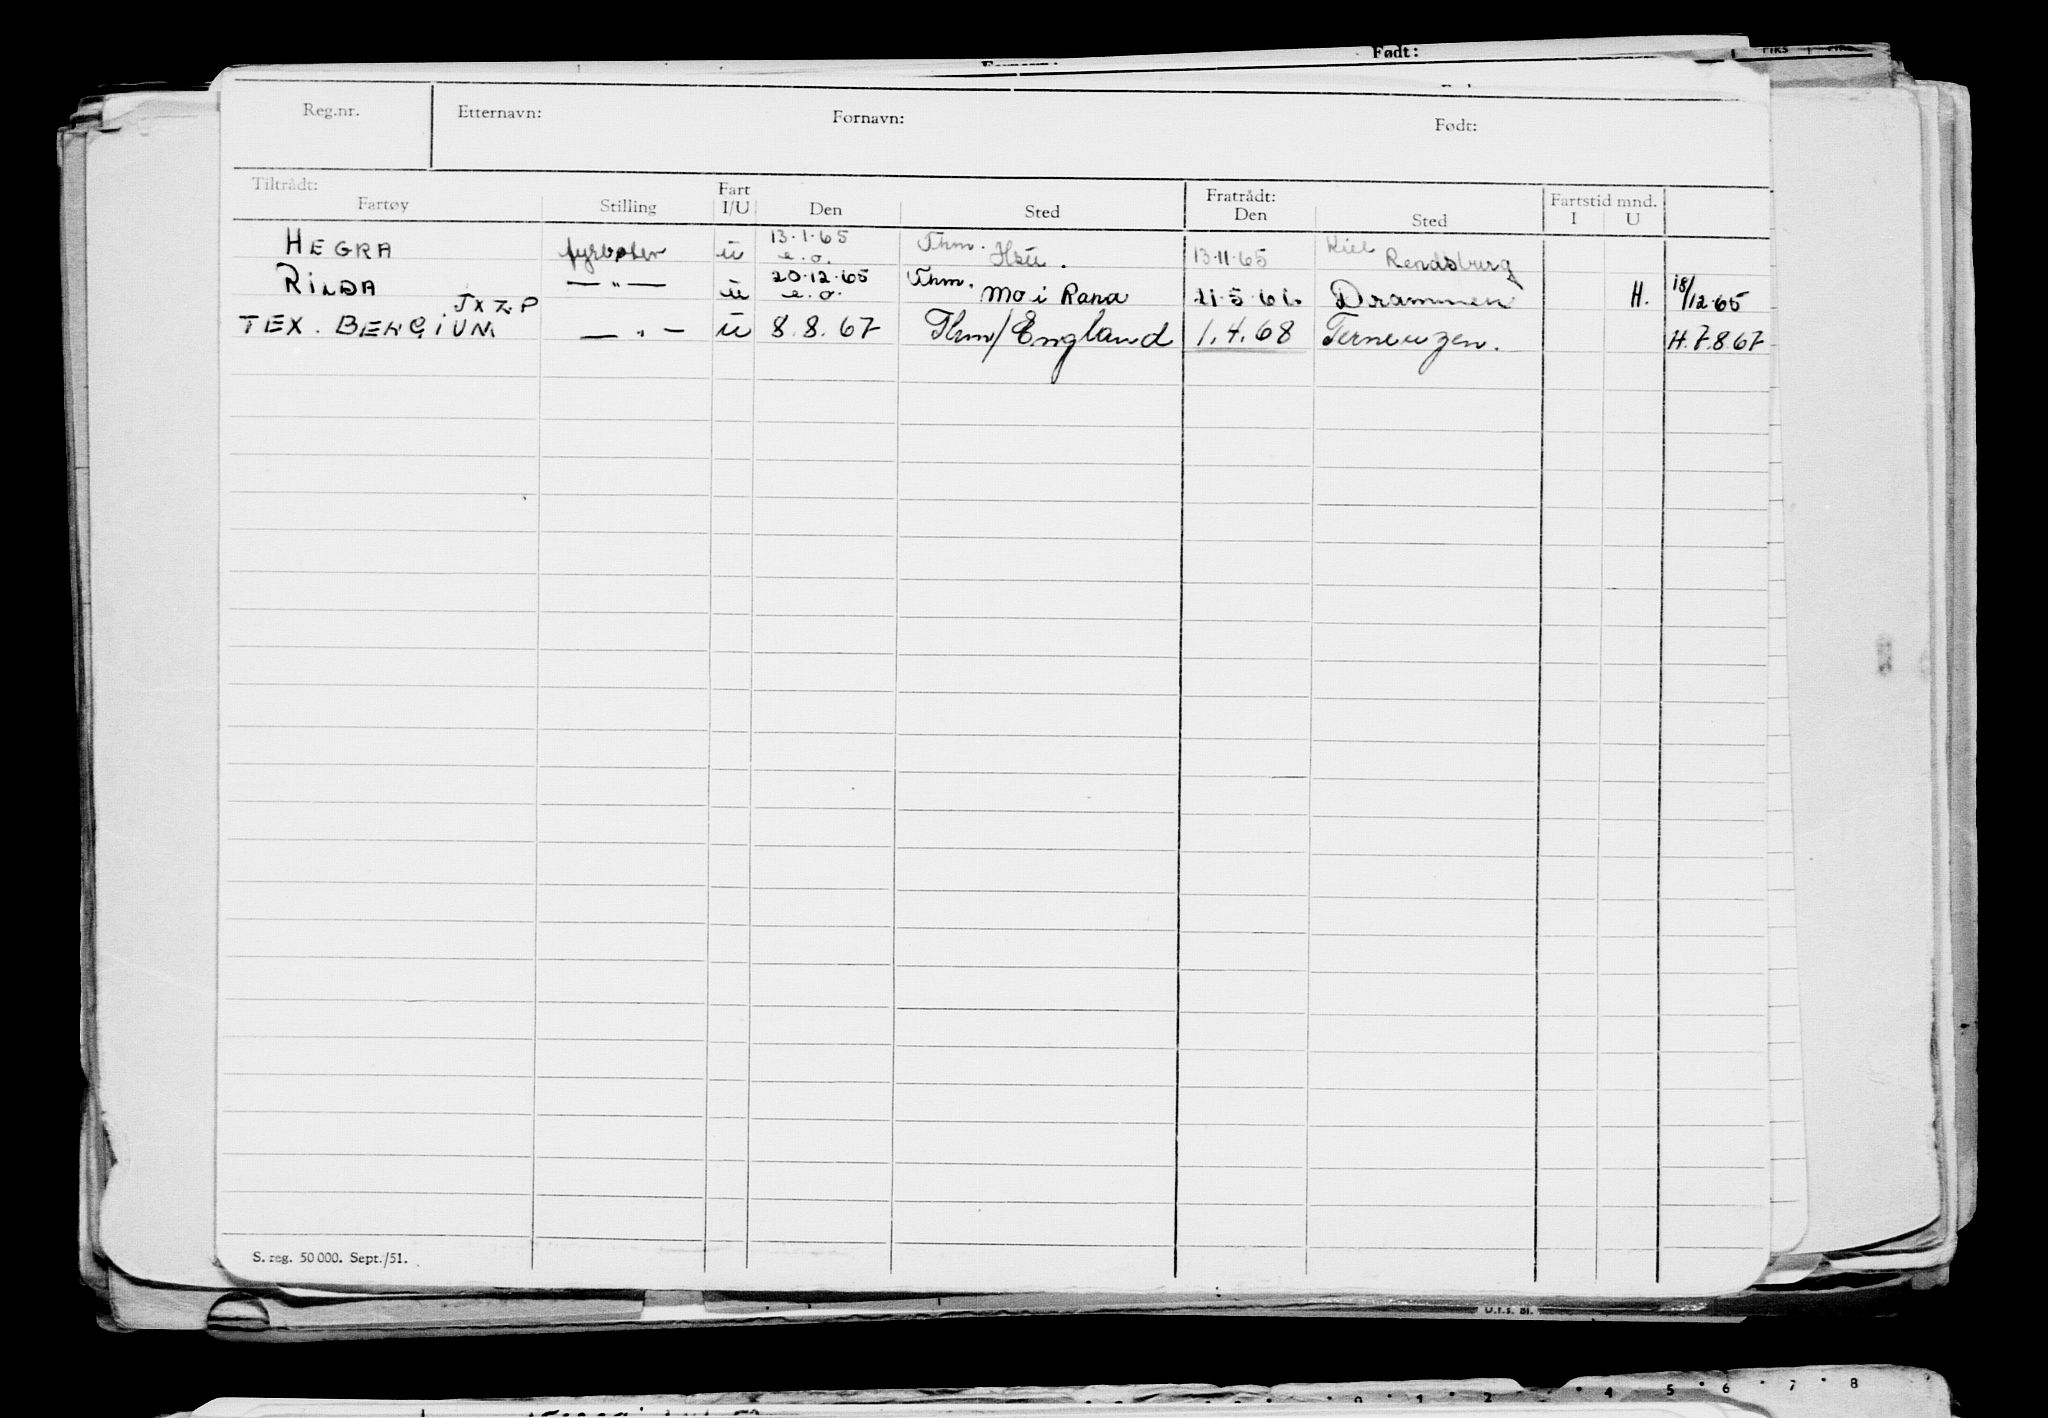 Født:
Reg.nr. Etternavn: Fornavn: Født:
Tiltrådt: Fartøy Stilling Fart I/U Den Sted Fratrådt: Den Sted Fartstid mnd. I U
HEGRA fyrbøter u 13.1.65 e.o. Thm. 13.11.65 Kiel Rendsburg
RILDA — " — u 20.12.65 e.o. Thm. Mo i Rana Drammen H. 18/12.65
JXZP
TEX. BERGIUM — " — u 8.8.67 Thm/England 1.4.68 Terneuzen. H.7.8 67
S. reg. 50 000. Sept./51.